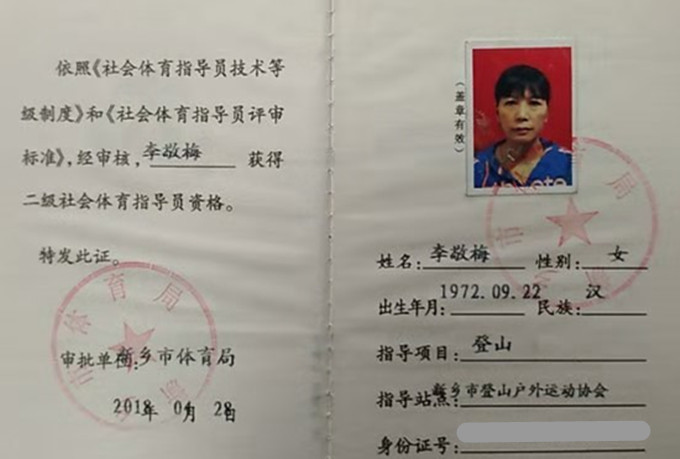 依照《社会体育指导员技术等
级制度》和《社会体育指导员评审
标准》，经审核，李敬梅 获得
二级社会体育指导员资格。
特发此证。
审批单位：新乡市体育局
2018年 04月 28日
（盖章有效）
姓名：李敬梅 性别：女
出生年月：1972.09.22 民族：汉
指导项目：登山
指导站点：新乡市登山户外运动协会
身份证号：